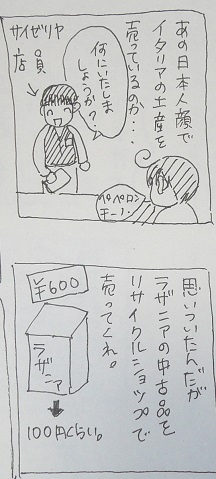 あの日本人顔で
イタリアの土産を
売っているのか…
何にいたしま
しょうか?
サイゼリヤ
店員
ペペロン
チーノ
思いついたんだが
ラザニアの中古品を
リサイクルショップで
売ってくれ。
¥600
ラザニア
100円くらい。